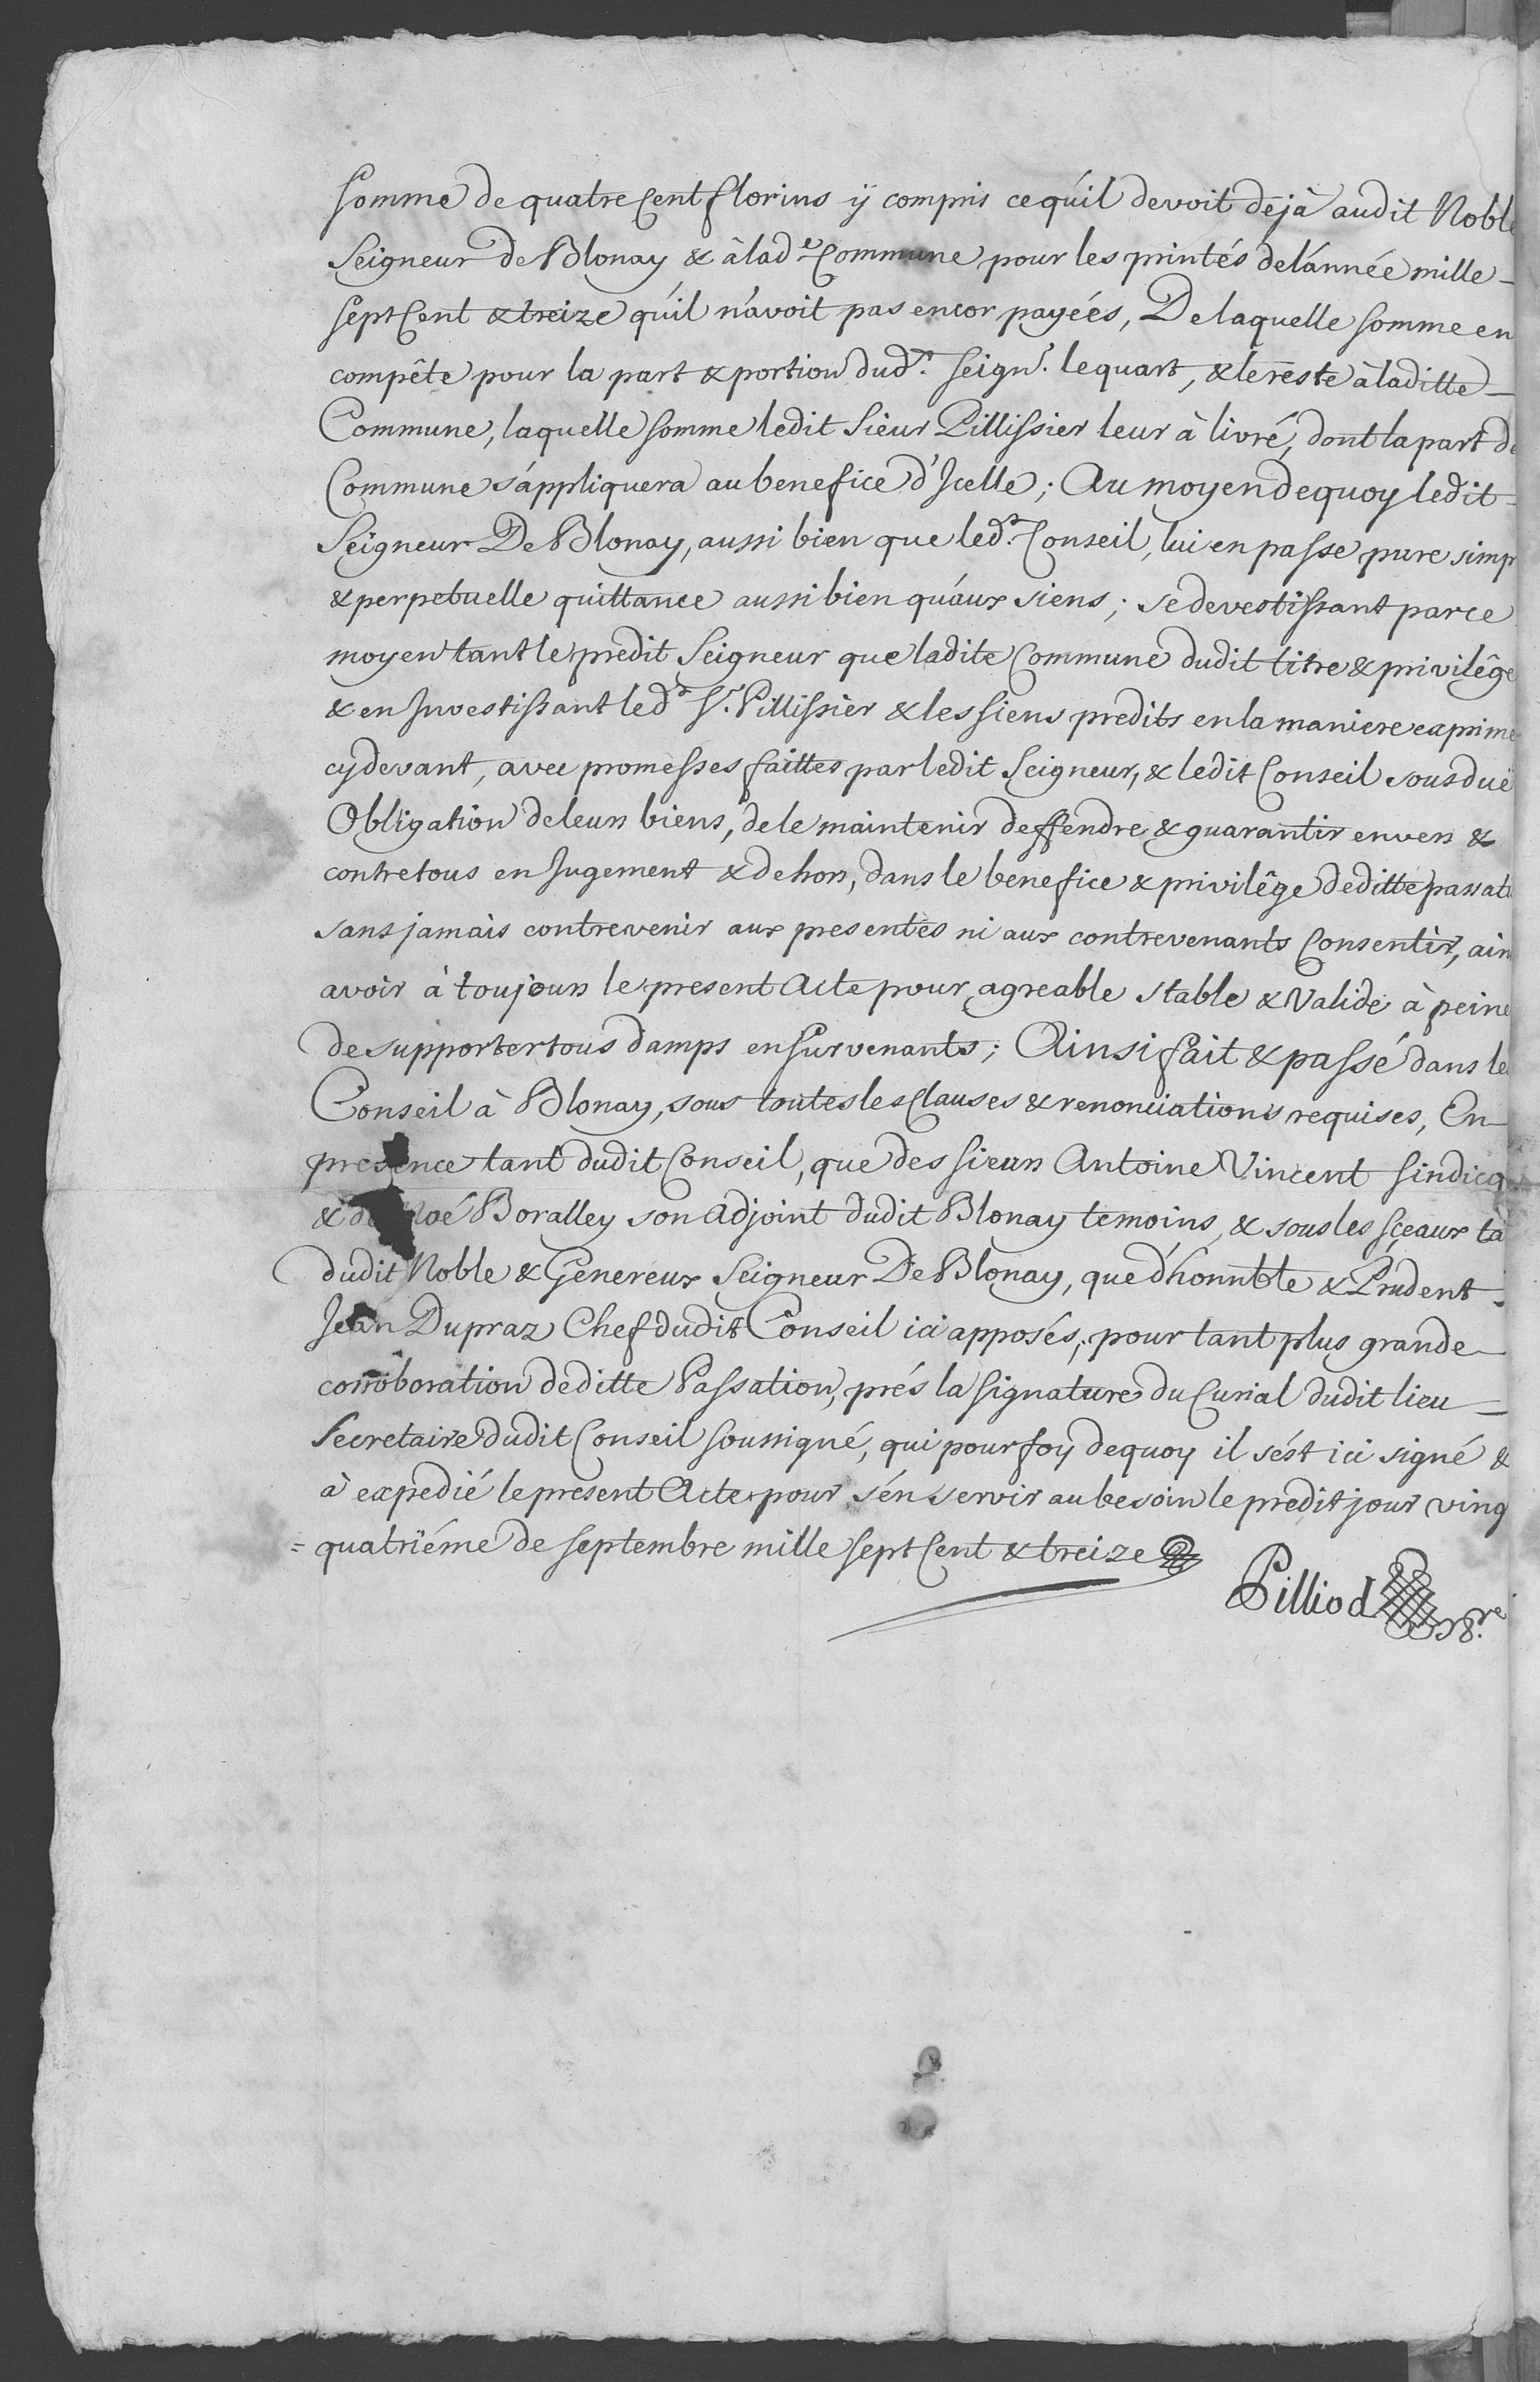 Somme de quatre Cent florins ÿ compris ce qu'il devoit deja audit Noble
Seigneur de Blonay & à lad.e Commune pour les printés de l'année mille
sept Cent & treize qu'il n'avoit pas encor payées, De laquelle somme en
compête pour la part & portion dud.t Seign.r le quart, & le reste à laditte
Commune, laquelle somme ledit Sieur Pillissier leur à livré, dont la part de
Commune s'appliquera au benefice d'Icelle; Au moyen dequoy ledit
Seigneur De Blonay, aussi bien que led.t Conseil, lui en passe pure simp
& perpetuelle quittance aussi bien qu'aux siens; se devestissant par ce
moyen tant le predit Seigneur que ladite Commune dudit titre & privilêge
& en Investissant led.t S.r Pillissier & les siens predits en la maniere exprimé
cy devant, avec promesses faittes par ledit Seigneur, & ledit Conseil sous duë
Obligation de leurs biens, de le maintenir deffendre & guarantir envers &
contre tous en Jugement & dehors, dans le benefice & privilêge de ditte passati
sans jamais contrevenir aux presentes ni aux contrevenants Consentir, ains
avoir à toujours le present Acte pour agreable stable & Valide à peine
de supporter tous damps en survenants; Ainsi fait & passé dans le
Conseil à Blonay, sous toutes les Clauses & renonciations requises, En
presence tant dudit Conseil, que des sieurs Antoine Vincent Sindicq
& de Noé Boralley son Adjoint dudit Blonay temoins, & sous les sçeaux ta
dudit Noble & Genereux Seigneur De Blonay, que d'honnble & Prudent
Jean Dupraz Chef dudit Conseil ici apposés, pour tant plus grande
corroboration de ditte Passation, prés la signature du Curial dudit lieu
Secretaire dudit Conseil soussigné, qui pour foy dequoy il s'est ici signé &
à expedié le present Acte pour s'en servir au besoin le predit jour ving
=quatriéme de septembre mille sept Cent & treize
Pilliod